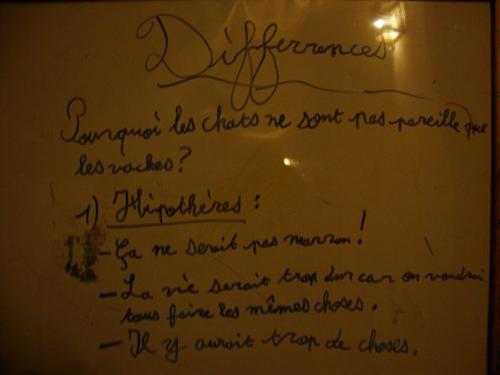 Differrences
Pourquoi les chats ne sont pas pareille que
les vaches?
1) Hipothères :
- Ça ne serait pas marron!
- La vie serait trop dur car on voudrai
tous faire les mêmes choses.
- Il y auroit trop de choses.